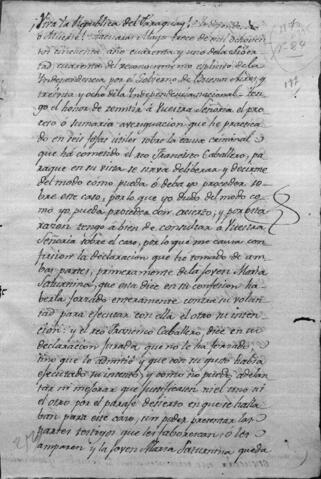 Viva la Republica del Paraguay!
o Muerte! Mayo trece de mil ochocien
tos cincuenta, año cuarenta y uno de la liber
tad cuarenta del reconocimiento explicito de la
Independencia por el Gobierno de Buenos Aires, y
treinta y ocho de la Independencia nacional = Ten
go el honor de remitir á Vuestra Señoria el pro
ceso ó sumaria averiguacion que he practica
do en seis fojas utiles sobre la causa criminal
que ha cometido el reo Francisco Caballero, pa
raque en su vista se sirva deliberar y decirme
del modo como pueda ó deba yo proceder so
bre este caso, por lo que yo dudo del modo co
mo yo pueda proceder con acierto, y por esta
razon tengo á bien de consultar á Vuestra
Señoria sobre el caso, por lo que me causa con
fusion la declaracion que he tomado de am
bas partes, primeramente de la joven Maria
Saturnina, que esta dice en su confesion ha
berla forzado enteramente contra su volun
tad para ejecutar con ella el otro su inten
cion: y el reo Francisco Caballero, dice en su
declaracion jurada, que no le ha forzado
sino que lo admitio y que con su gusto habia
ejecutado su intento, y como no puede adelan
tar ni mejorar que justifiquen ni el uno ni
el otro por el paraje desierto en que se halla
ban para este caso, sin poder presentar las
partes testigos que les faborescan ó les
amparen y la joven Maria Saturnina queda